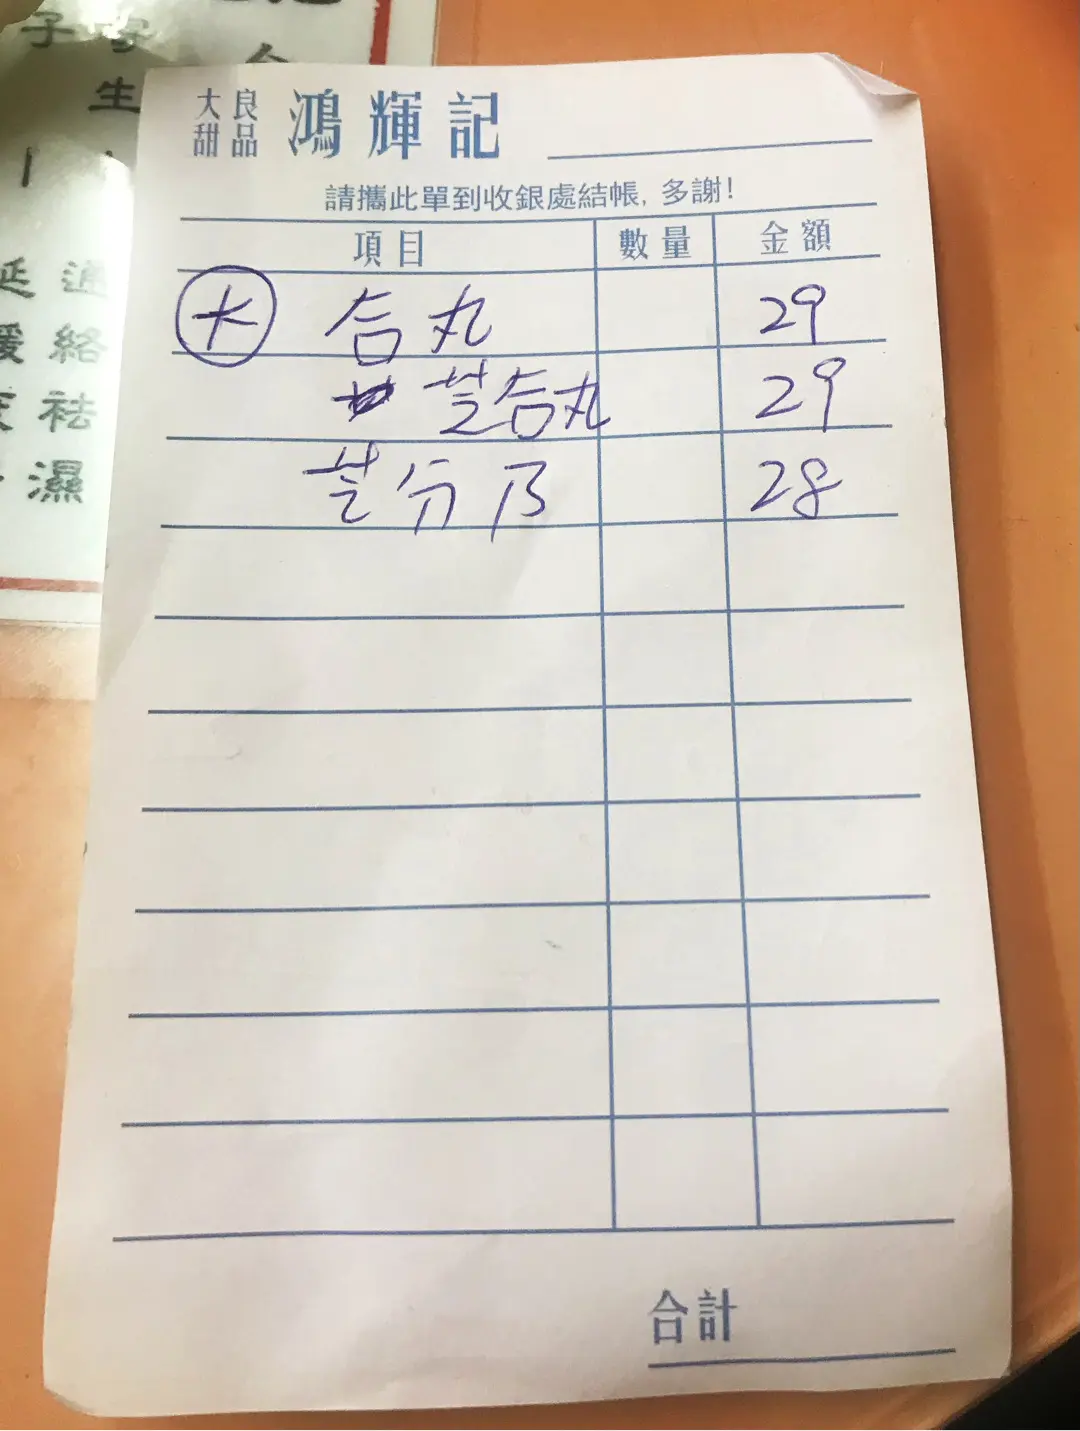 大良
甜品
鴻輝記
請攜此單到收銀處結帳, 多謝!
項目 數量 金額
大 合丸 29
芝合丸 29
芝分乃 28
合計
子
生
延 通
緩 絡
祛
濕